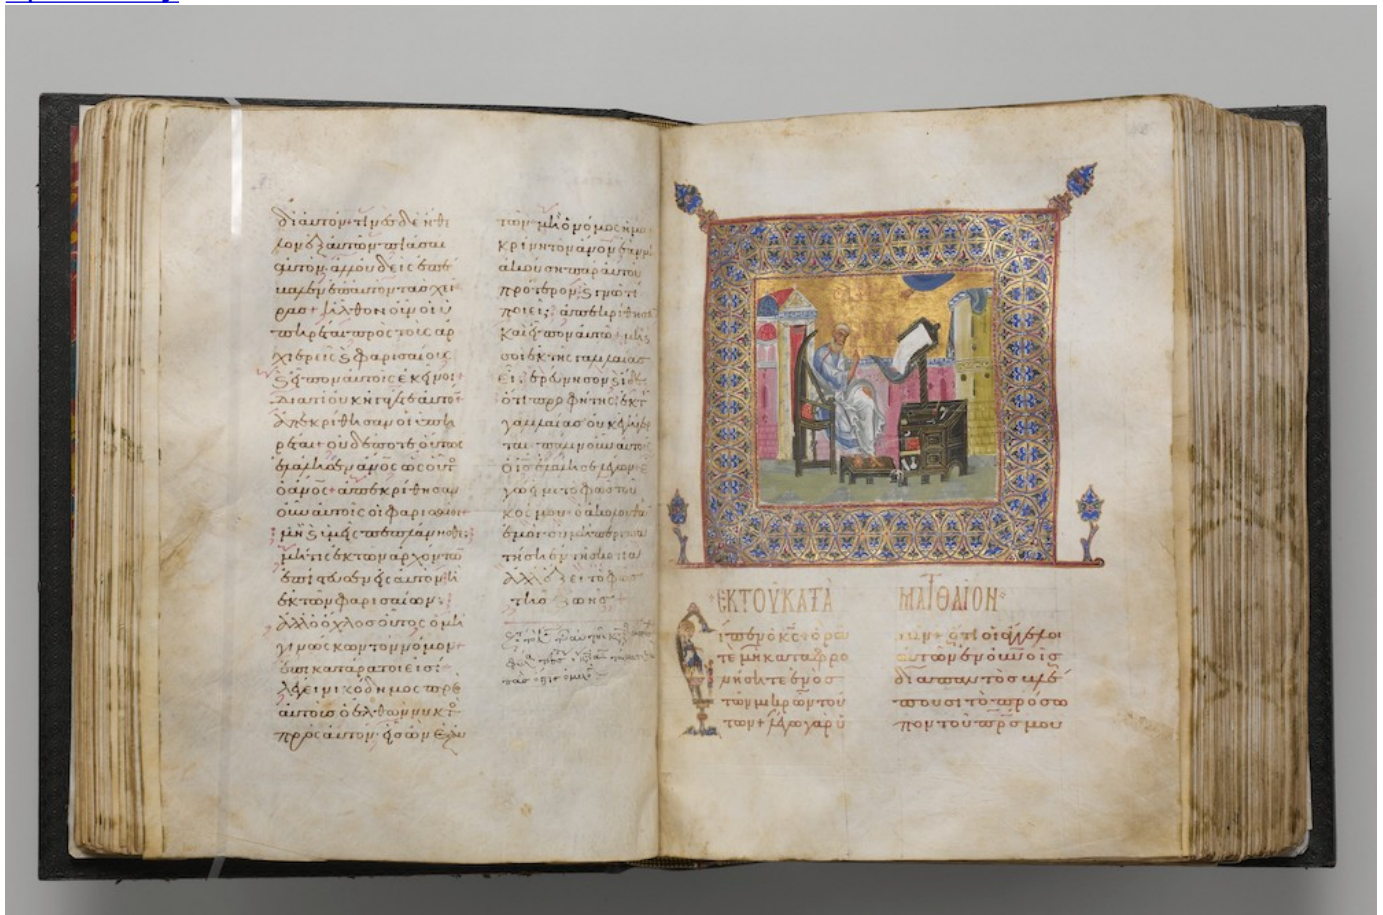 δι αὐτόν· τινὲς δὲ ἤθε
λον ἐξ αὐτῶν πιάσαι
αὐτόν· ἀλλ οὐδεὶς ἐπέ
βαλεν ἐπ αὐτὸν τὰς χεῖ
ρας + ἦλθον οὖν οἱ ὑ
πηρέται πρὸς τοὺς ἀρ
χιερεῖς ϗ φαρισαίους
ϗ εἶπον αὐτοῖς ἐκεῖνοι·
διατί οὐκ ἠγάγετε αὐτόν
ἀπεκρίθησαν οἱ ὑπη
ρέται· οὐδέποτε οὕτως
ἐλάλησεν ἄνος ὡς οὗτ
ὁ ἄνος + ἀπεκρίθησαν
οὖν αὐτοῖς οἱ φαρισαῖοι
μὴ ϗ ὑμεῖς πεπλάνησθε;
μή τις ἐκ τῶν ἀρχόντω
ἐπίστευσεν εἰς αὐτὸν ἢ
ἐκ τῶν φαρισαίων;
ἀλλ ὁ ὄχλος οὗτος ὁ μὴ
γινώσκων τὸν νόμον
ἐπικατάρατοί εἰσι·
λέγει νικόδημος πρὸ
αὐτοὺς ὁ ἐλθὼν νυκτὸ
πρὸς αὐτόν· εἷς ὢν ἐξ αὐ
τῶν· μὴ ὁ νόμος ἡμῶ
κρίνει τὸν ἄνον ἐὰν μὴ
ἀκούσῃ παρ αὐτοῦ
πρότερον ϗ γνῷ τί
ποιεῖ; ἀπεκρίθησα
καὶ εἶπον αὐτῷ· μὴ ϗ
σὺ ἐκ τῆς γαλιλαίας
εἶ; ἐρεύνησον ϗ ἴδε
ὅτι προφήτης ἐκ τ
γαλιλαίας οὐκ ἐγήγερ
ται· πάλιν οὖν αὐτοῖς
ὁ ις ἐλάλησε λέγων· ἐ
γώ εἰμι τὸ φῶς τοῦ
κόσμου· ὁ ἀκολουθῶ
ἐμοὶ οὐ μὴ περιπα
τήσῃ ἐν τῇ σκοτίᾳ
ἀλλ ἕξει τὸ φῶς
τῆς ζωῆς +
ἘΚ ΤΟΥ ΚΑΤΑ ΜΑΤΘΑΙΟΝ
εἶπεν ὁ κς· ὁρᾶ
τε μὴ καταφρο
νήσητε ἑνὸς
τῶν μικρῶν τού
των + λέγω γὰρ ὑ
μῖν· ὅτι οἱ ἄγγελοι
αὐτῶν ἐν οὐνοῖς
διαπαντὸς βλέ
πουσι τὸ πρόσω
πον τοῦ πρς μου